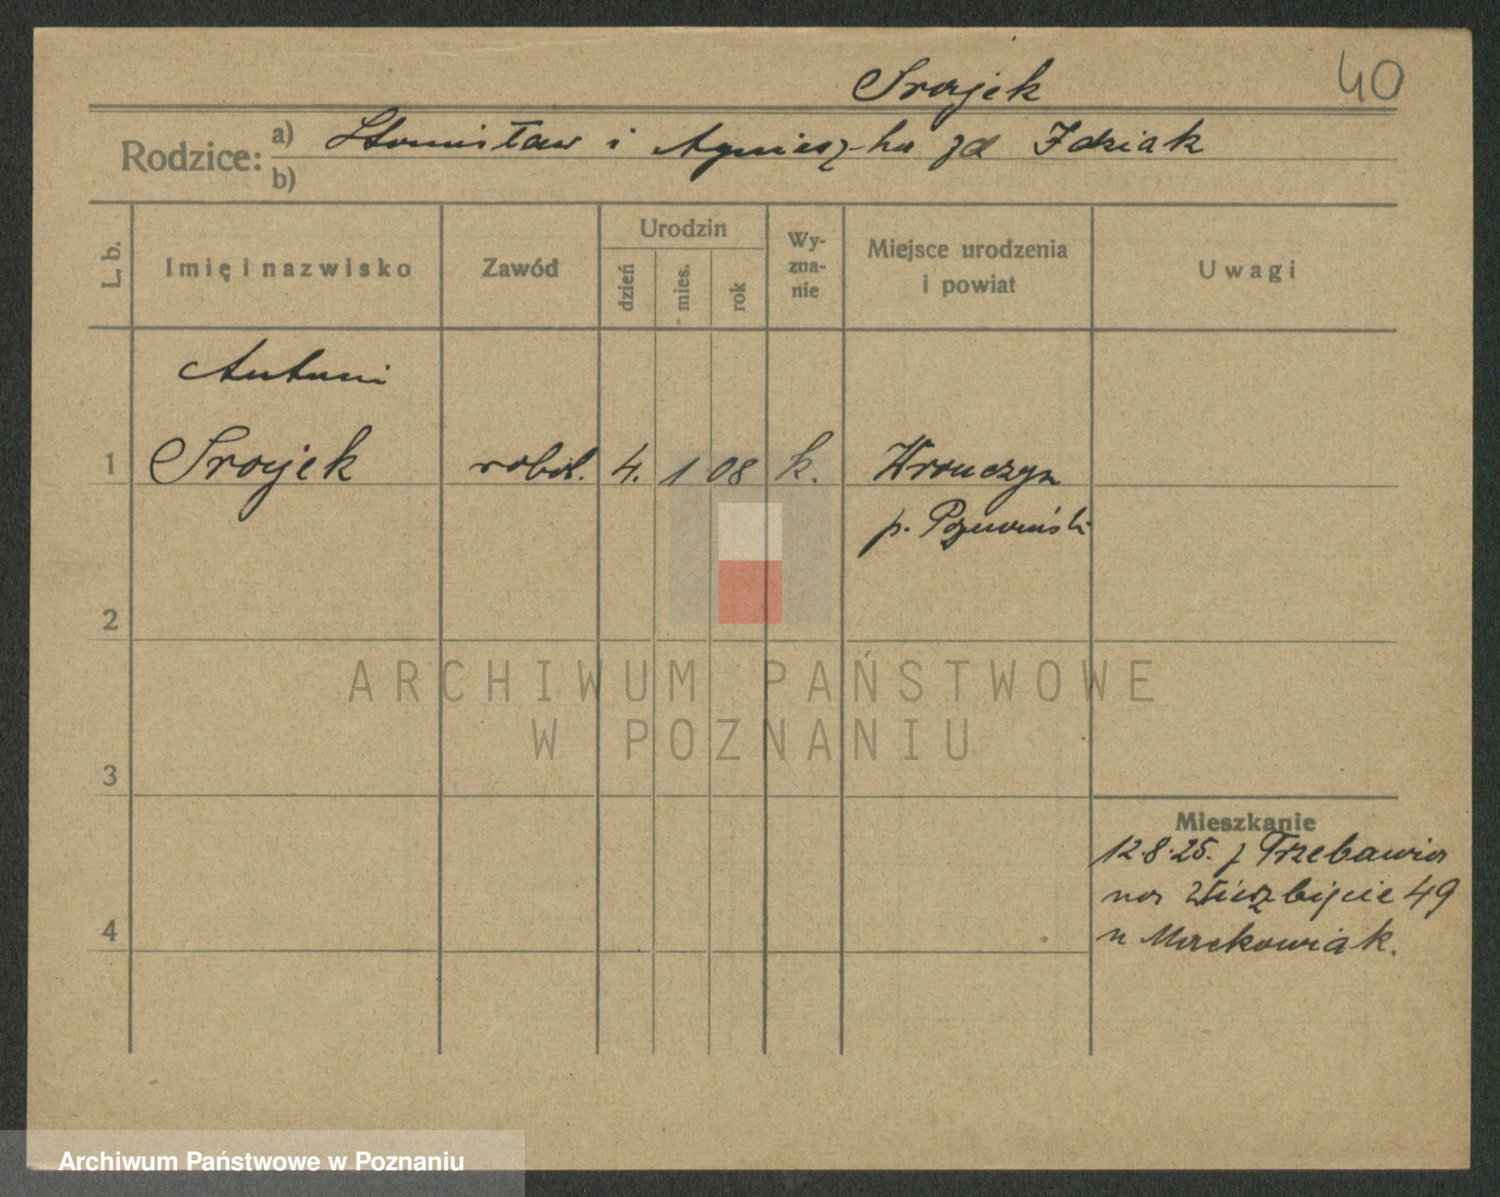 40
Srojek
Rodzice: a) Stanisław i Agnieszka zd Idziak
b)
L. b.
Imię i nazwisko
Zawód
Urodzin
dzień
mies.
rok
Wy-
zna-
nie
Miejsce urodzenia
i powiat
Uwagi
Antoni
1 Srojek robot. 4. 1 08 k. Wronczyn
p. Poznański
2
ARCHIWUM PAŃSTWOWE
W POZNANIU
3
Mieszkanie
12.8.25. z Trzebawia
na Wierzbięcie 49
4
u Maćkowiak.
Archiwum Państwowe w Poznaniu